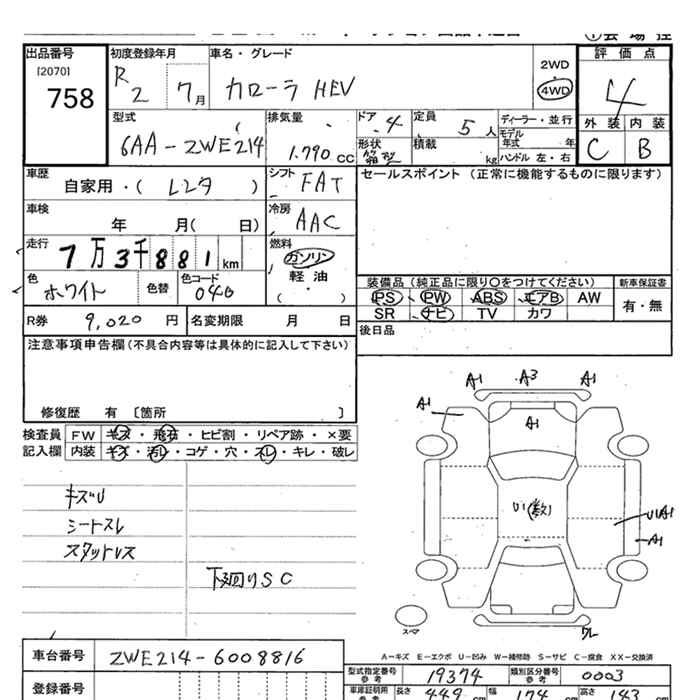 出品番号
[2070]
758
初度登録年月
R2 7月
車名・グレード
カローラ HEV
2WD
4WD
評価点
4
外装 内装
C B
型式
6AA-ZWE214
排気量
1.790 CC
ドア 4
形状
定員 5人
積載 kg
ディーラー・並行
モデル年式 年
ハンドル 左・右
車歴
自家用・( レンタ )
シフト FAT
セールスポイント(正常に機能するものに限ります)
車検
年 月( 日)
冷房 AAC
走行
7万3千881km
燃料
ガソリン
軽油
( ・ )
色 ホワイト
色替
色コード 040
装備品(純正品に限り○をつけてください)
新車保証書
PS PW ABS エアB AW
有・無
SR ナビ TV カワ
R券 9,020 円
名変期限 月 日
後日品
注意事項申告欄(不具合内容等は具体的に記入して下さい)
修復歴 有 [箇所 ]
検査員
記入欄
FW キズ・飛石・ヒビ割・リペア跡・×要
内装 キズ・汚レ・コゲ・穴・スレ・キレ・破レ
キズU
シートスレ
スタットレス
下廻りSC
A1 A3 A1
A1
A1
U1(数)
U1A1
A1
ワレ
スペア
A-キズ E-エクボ U-凹み W-補修跡 S-サビ C-腐食 XX-交換済
車台番号 ZWE214-6008816
登録番号
型式指定番号
参考
19374
類別区分番号
参考
0003
車庫証明用
参考
長さ 449 cm
幅 174 cm
高さ 143 cm